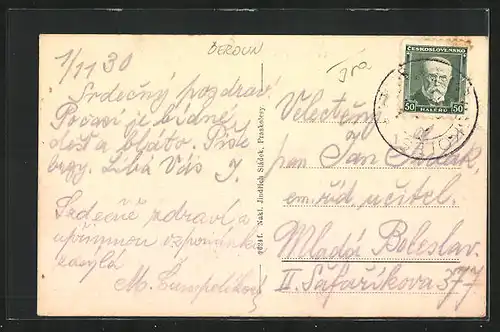 BEROUN
1/11 30
Srdečný pozdrav
Počasí je bídné,
déšť a bláto. Piště
brzy. Líbá Vás J.
Srdečně zdraví a
upřímnou vzpomínku
zasýlá
M.
76241. Nakl. Jindřich Sládek, Praskolesy.
ČESKOSLOVENSKO
50 HALÉŘŮ 50
Velectěný
pan Jan
em. říd. učitel.
Mladá Boleslav.
II. Šafaříkova 377